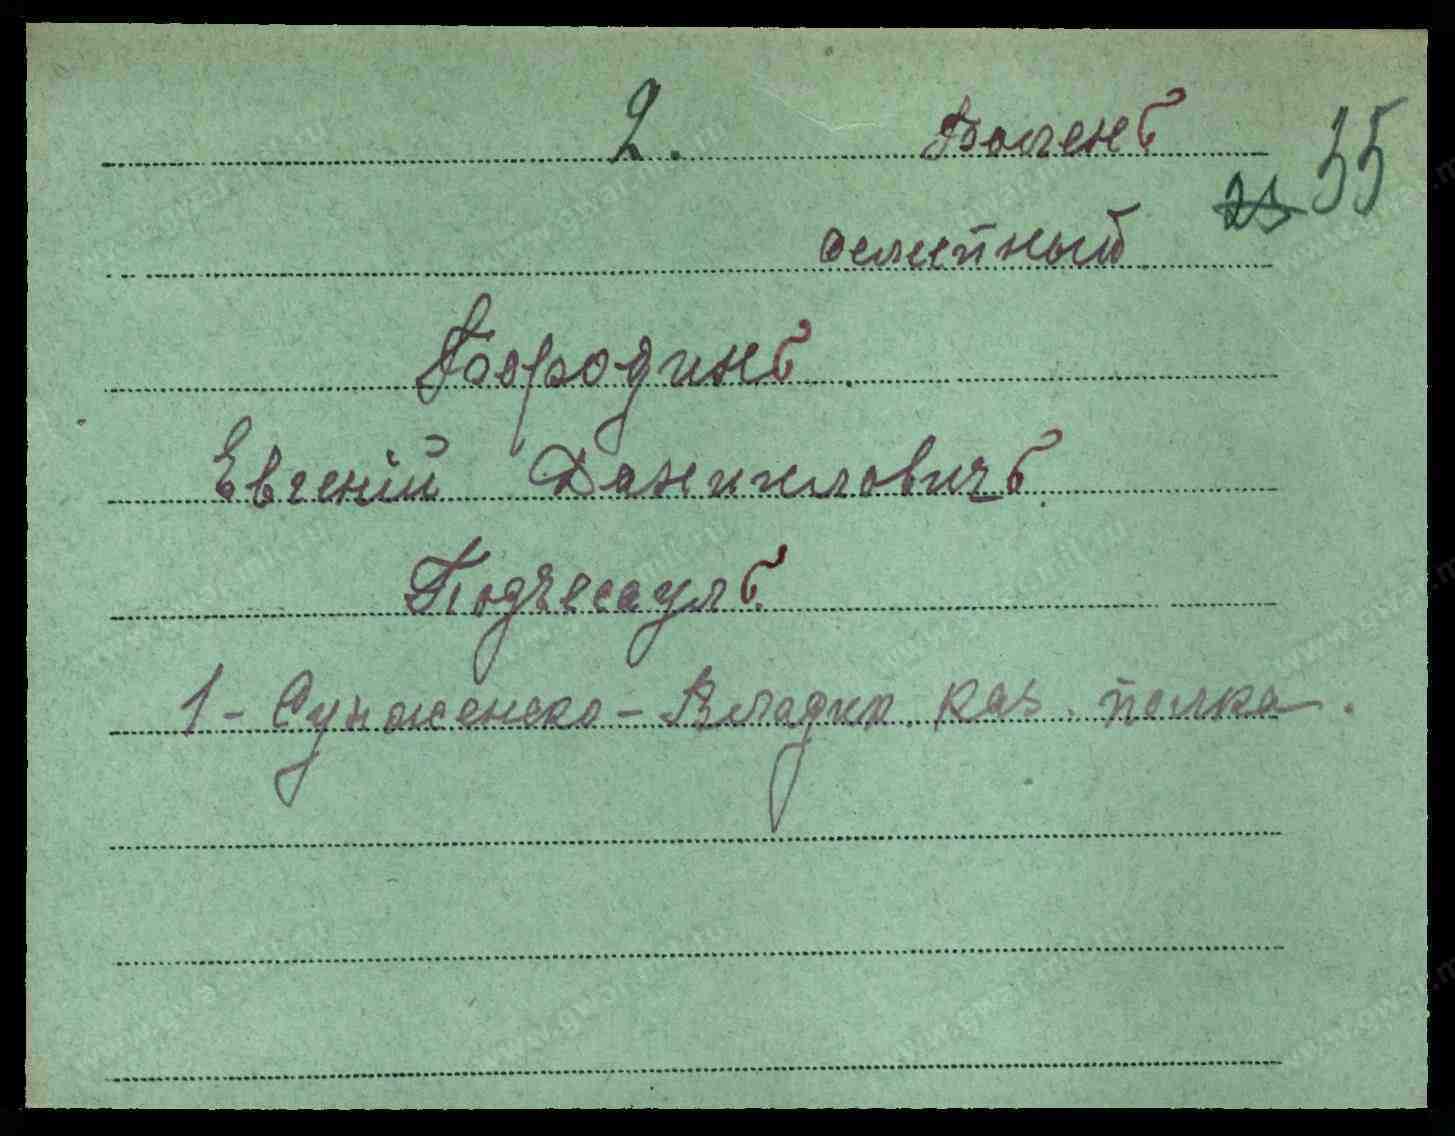 2. Боленъ
35
23
семейный
Бородинъ
Евгеній Данииловичъ.
Подъесаулъ
1-Сунженско-Владик. каз. полка.